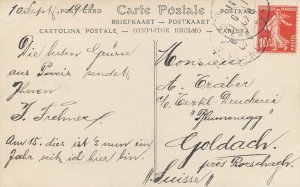 10. Sept. 1912
POST CARD Carte Postale POSTKARTE
BRIEFKAART — POSTKAART
CARTOLINA POSTALE — ОТКРЫТОЕ ПИСЬМО
Die besten Grüsse
aus Paris sendet
Ihnen
Am 15. dies ist's nun ein
Jahr seit ich hier bin.
Monsieur
A. Träber
c/o Textil Druckerei
"Blumenegg"
Goldach.
près Rorschach.
"Suisse"
10